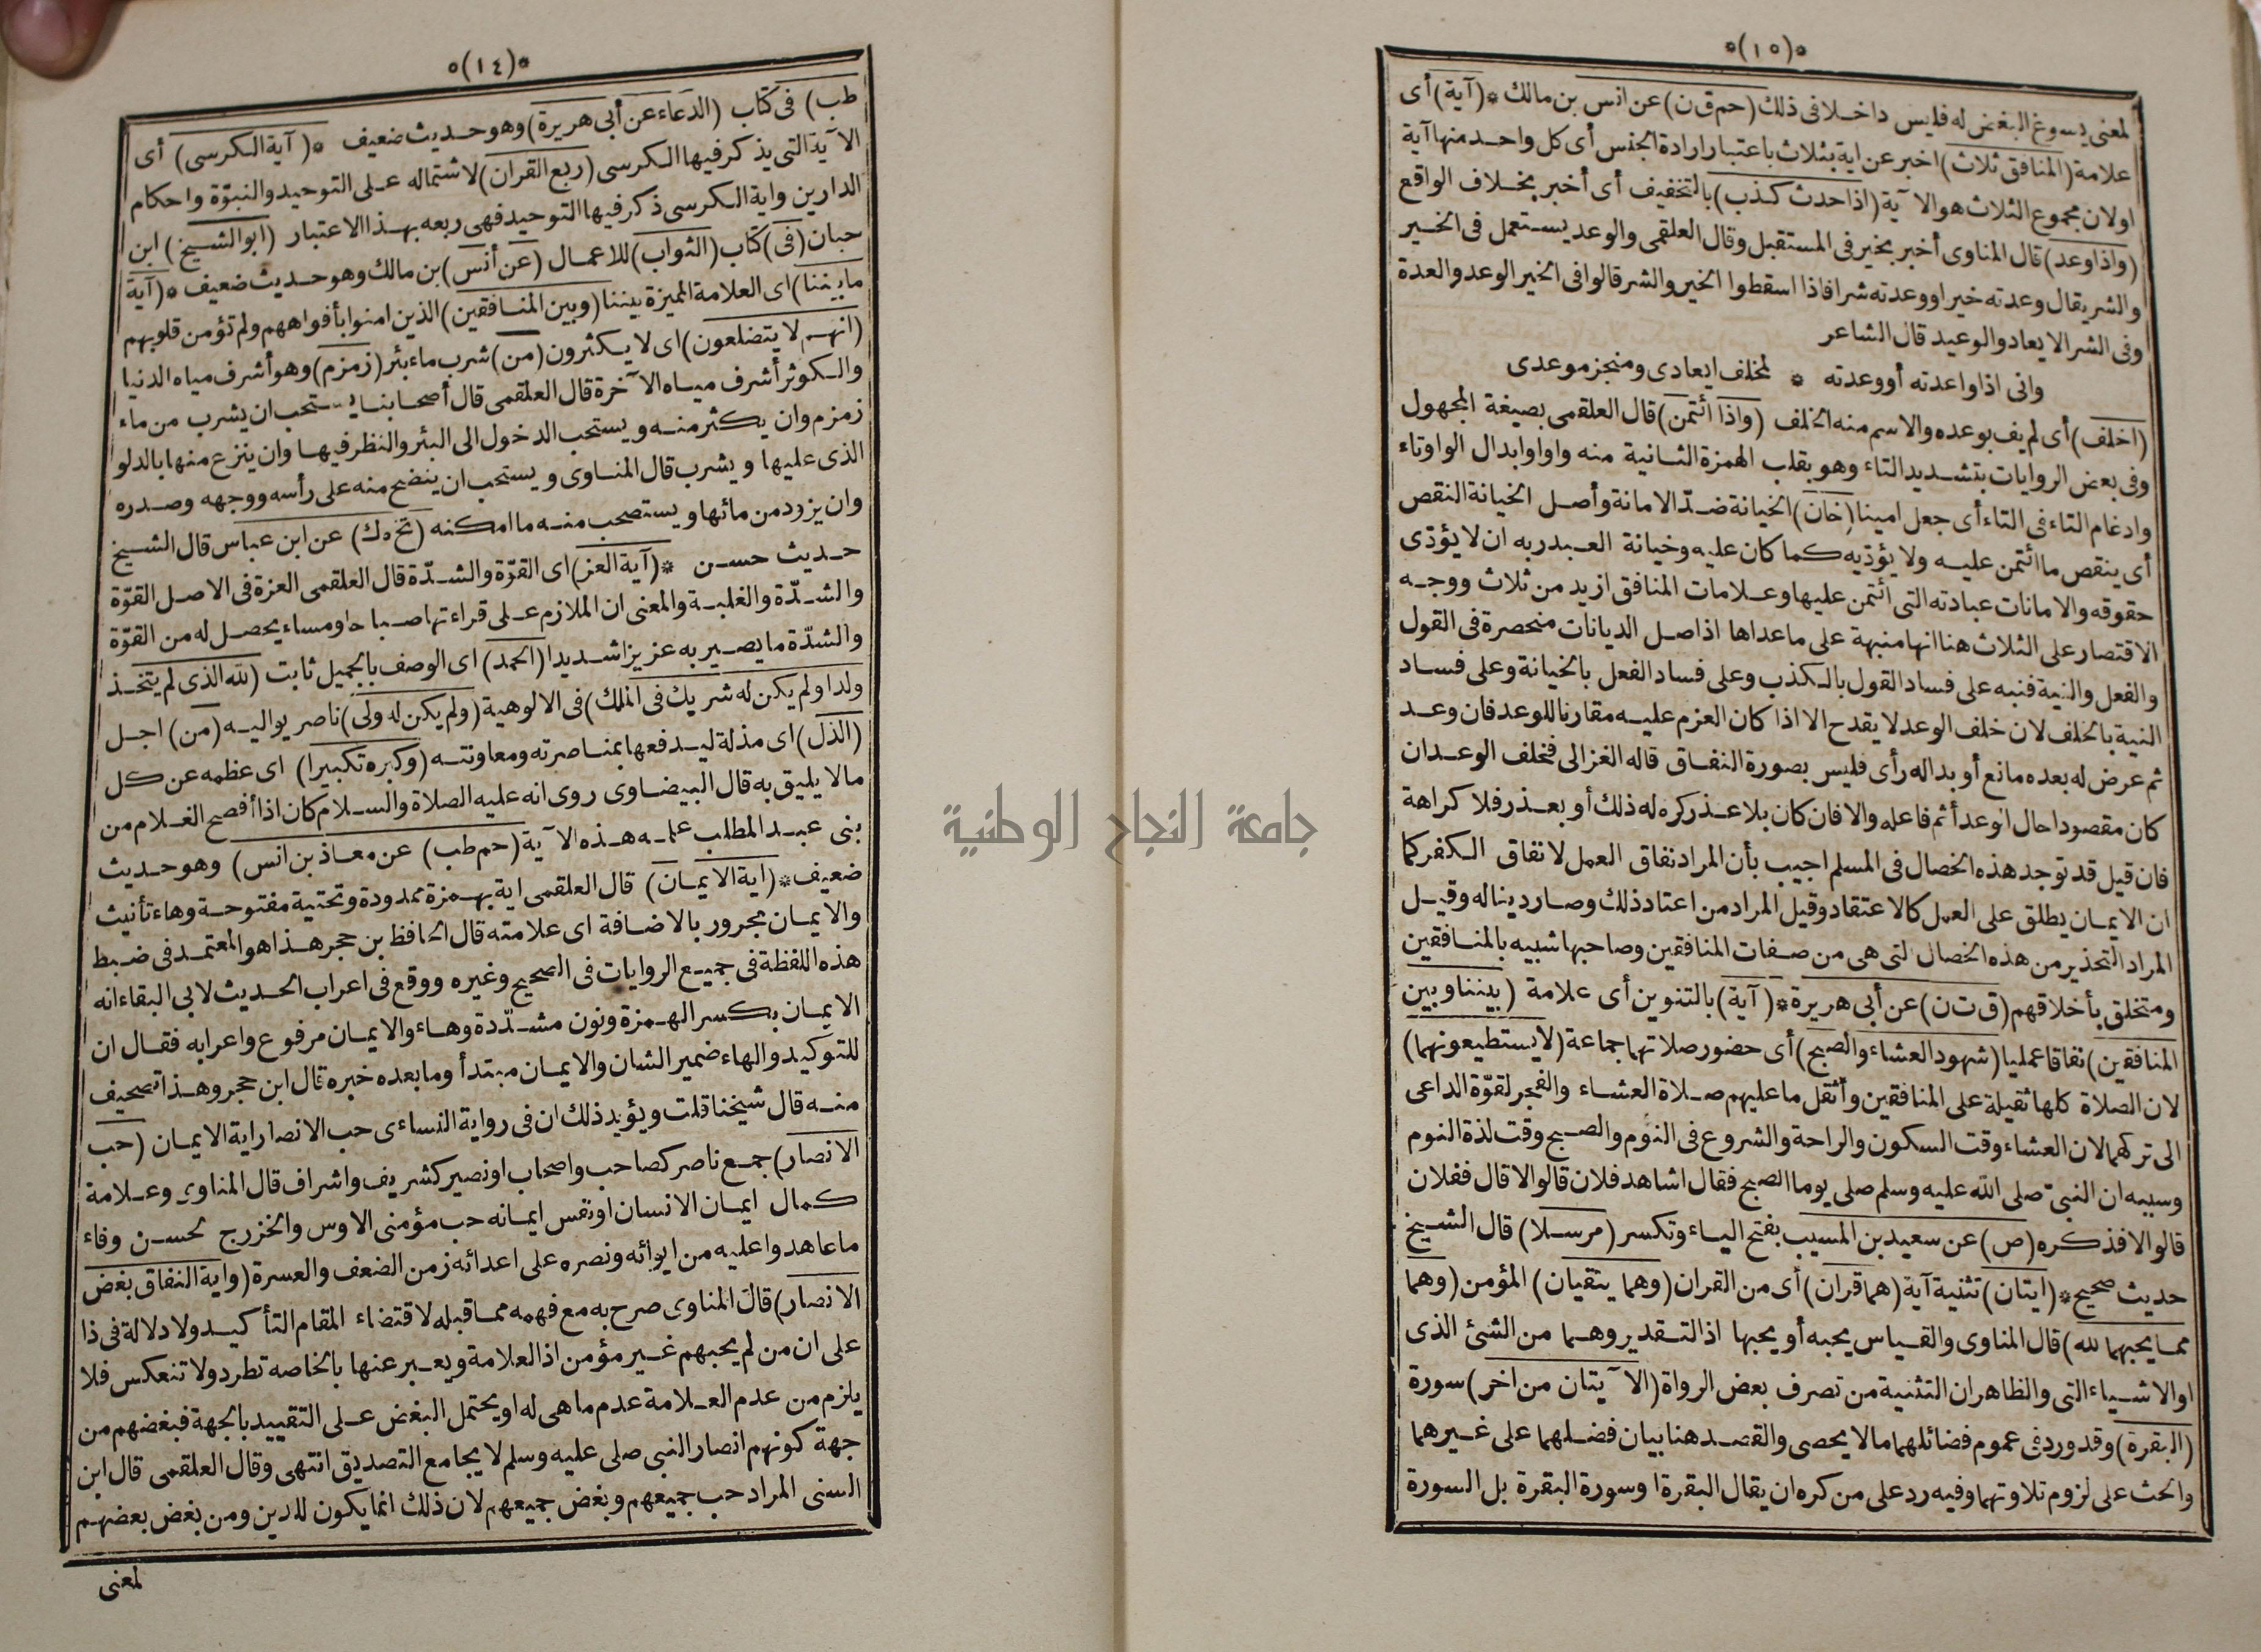 *(١٤)*
طب) فى كتاب (الدعاء عن أبى هريرة) وهو حديث ضعيف * (آية الكرسى) أى
الآية التى يذكر فيها الكرسى (ربع القران) لاشتماله على التوحيد والنبوّة واحكام
الدارين واية الكرسى ذكر فيها التوحيد فهى ربعه بهذا الاعتبار (ابو الشيخ) ابن
حبان (فى) كتاب (الثواب) للاعمال (عن أنس) بن مالك وهو حديث ضعيف * (آية
مابيننا) اى العلامة المميزة بيننا (وبين المنافقين) الذين امنوا بأفواههم ولم تؤمن قلوبهم
(انهم لا يتضلعون) اى لا يكثرون (من) شرب ماء بئر (زمزم) وهو أشرف مياه الدنيا
والكوثر أشرف مياه الآخرة قال العلقمى قال أصحابنا يستحب ان يشرب من ماء
زمزم وان يكثر منه ويستحب الدخول الى البئر والنظر فيها وان ينزع منها بالدلو
الذى عليها ويشرب قال المناوى ويستحب ان ينضح منه على رأسه ووجهه وصدره
وان يزود من مائها ويستصحب منه ما امكنه (تخ ه ك) عن ابن عباس قال الشيخ
حديث حسن * (آية العز) اى القوّة والشدّة قال العلقمى العزة فى الاصل القوّة
والشدّة والغلبة والمعنى ان الملازم على قراءتها صباحا ومساء يحصل له من القوّة
والشدّة ما يصير به عزيزا شديدا (الحمد) اى الوصف بالجميل ثابت (لله الذى لم يتخذ
ولدا ولم يكن له شريك فى الملك) فى الالوهية (ولم يكن له ولى) ناصر يواليه (من) اجل
(الذل) اى مذلة ليدفعها بمناصرته ومعاونته (وكبره تكبيرا) اى عظمه عن كل
مالا يليق به قال البيضاوى روى انه عليه الصلاة والسلام كان اذا أفصح الغلام من
بنى عبد المطلب علمه هذه الآية (حم طب) عن معاذ بن انس) وهو حديث
ضعيف * (اية الايمان) قال العلقمى اية بهمزة ممدودة وتحتية مفتوحة وهاء تأنيث
والايمان مجرور بالاضافة اى علامته قال الحافظ بن حجر هذا هو المعتمد فى ضبط
هذه اللفظة فى جميع الروايات فى الصحيح وغيره ووقع فى اعراب الحديث لابى البقاء انه
الايمان بكسر الهمزة ونون مشدّدة وهاء والايمان مرفوع واعرابه فقال ان
للتوكيد والهاء ضمير الشان والايمان مبتدأ وما بعده خبره قال ابن حجر وهذا تصحيف
منه قال شيخنا قلت ويؤيد ذلك ان فى رواية النساءى حب الانصار اية الايمان (حب
الانصار) جمع ناصر كصاحب واصحاب او نصير كشريف واشراف قال المناوى وعلامة
كمال ايمان الانسان او نفس ايمانه حب مؤمنى الاوس والخزرج لحسن وفاء
ما عاهدوا عليه من ايوائه ونصره على اعدائه زمن الضعف والعسرة (واية النفاق بغض
الانصار) قال المناوى صرح به مع فهمه مما قبله لاقتضاء المقام التأكيد ولا دلالة فى ذا
على ان من لم يحبهم غير مؤمن اذ العلامة ويعبر عنها بالخاصه تطرد ولا تنعكس فلا
يلزم من عدم العلامة عدم ما هى له او يحتمل البغض على التقييد بالجهة فبغضهم من
جهة كونهم انصار النبى صلى عليه وسلم لا يجامع التصديق انتهى وقال العلقمى قال ابن
السنى المراد حب جميعهم وبغض جميعهم لان ذلك انما يكون للدين ومن بغض بعضهم
لمعنى
*(١٥)*
لمعنى يسوغ البغض له فليس داخلا فى ذلك (حم ق ن) عن انس بن مالك * (آية) أى
علامة (المنافق ثلاث) اخبر عن اية بثلاث باعتبار ارادة الجنس أى كل واحد منها آية
اولان مجموع الثلاث هو الآية (اذا حدث كذب) بالتخفيف أى أخبر بخلاف الواقع
(واذا وعد) قال المناوى أخبر بخير فى المستقبل وقال العلقمى والوعد يستعمل فى الخير
والشر يقال وعدته خيرا ووعدته شرا فاذا اسقطوا الخير والشر قالوا فى الخير الوعد والعدة
وفى الشر الايعاد والوعيد قال الشاعر
وانى اذا واعدته أو وعدته * لمخلف ايعادى ومنجز موعدى
(اخلف) أى لم يف بوعده والاسم منه الخلف (واذا ائتمن) قال العلقمى بصيغة المجهول
وفى بعض الروايات بتشديد التاء وهو بقلب الهمزة الثانية منه واوا وابدال الواو تاء
وادغام التاء فى التاء أى جعل امينا (خان) الخيانة ضدّ الامانة وأصل الخيانة النقص
أى ينقص ما ائتمن عليه ولا يؤدّيه كما كان عليه وخيانة العبد ربه ان لا يؤدّى
حقوقه والامانات عبادته التى ائتمن عليها وعلامات المنافق ازيد من ثلاث ووجه
الاقتصار على الثلاث هنا انها منبهة على ما عداها اذ اصل الديانات منحصرة فى القول
والفعل والنية فنبه على فساد القول بالكذب وعلى فساد الفعل بالخيانة وعلى فساد
النية بالخلف لان خلف الوعد لا يقدح الا اذا كان العزم عليه مقارنا للوعد فان وعد
ثم عرض له بعده مانع أو بدا له رأى فليس بصورة النفاق قاله الغزالى فخلف الوعد ان
كان مقصودا حال الوعد أثم فاعله والا فان كان بلا عذر كره له ذلك أو بعذر فلا كراهة
فان قيل قد توجد هذه الخصال فى المسلم اجيب بأن المراد نفاق العمل لا نفاق الكفر كما
ان الايمان يطلق على العمل كالاعتقاد وقيل المراد من اعتاد ذلك وصار دينا له وقيل
المراد التحذير من هذه الخصال التى هى من صفات المنافقين وصاحبها شبيه بالمنافقين
ومتخلق بأخلاقهم (ق ت ن) عن أبى هريرة * (آية) بالتنوين أى علامة (بيننا وبين
المنافقين) نفاقا عمليا (شهود العشاء والصبح) أى حضور صلاتهما جماعة (لا يستطيعونهما)
لان الصلاة كلها ثقيلة على المنافقين وأثقل ما عليهم صلاة العشاء والفجر لقوّة الداعى
الى تركهما لان العشاء وقت السكون والراحة والشروع فى النوم والصبح وقت لذة النوم
وسببه ان النبىّ صلى الله عليه وسلم صلى يوما الصبح فقال اشاهد فلان قالوا لا قال ففلان
قالوا لا فذكره (ص) عن سعيد بن المسيب بفتح الياء وتكسر (مرسلا) قال الشيخ
حديث صحيح * (ايتان) تثنية آية (هما قران) أى من القران (وهما يتقيان) المؤمن (وهما
مما يحبهما لله) قال المناوى والقياس يحبه أو يحبها اذ التقدير وهما من الشئ الذى
او الاشياء التى والظاهر ان التثنية من تصرف بعض الرواة (الآيتان من اخر) سورة
(البقرة) وقد ورد فى عموم فضائلهما مالا يحصى والقصد هنا بيان فضلهما على غيرهما
والحث على لزوم تلاوتهما وفيه رد على من كره ان يقال البقرة او سورة البقرة بل السورة
جامعة النجاح الوطنية